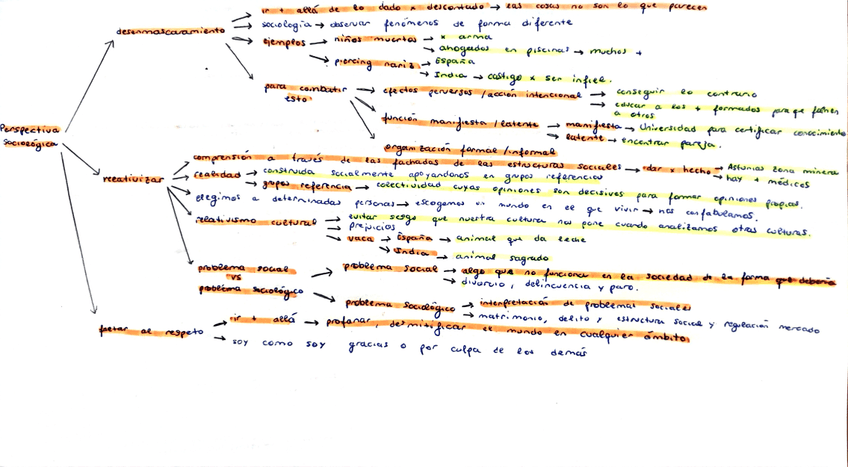 ir + allá de lo dado x descontado → las cosas no son lo que parecen
desenmascaramiento → sociología → observar fenómenos de forma diferente
ejemplos → niños muertos → x arma
→ ahogados en piscinas → muchos +
→ piercing nariz → España
→ India → castigo x ser infiel.
para combatir esto → efectos perversos / acción intencional → conseguir lo contrario
→ educar a los + formados para que
a otros
→ función manifiesta / latente → manifiesta → Universidad para certificar conocimiento
→ latente → encontrar pareja.
→ organización formal / informal
Perspectiva
Sociológica
relativizar → comprensión a través de las fachadas de las estructuras sociales → dar x hecho → Asturias zona minera
→ hay + médicos
→ realidad → construida socialmente apoyándonos en grupos referencias
→ grupos referencia → colectividad cuyas opiniones son decisivas para formar opiniones propias.
→ elegimos a determinadas personas → escogemos un mundo en el que vivir → nos confabulamos.
→ relativismo cultural → evitar sesgo que nuestra cultura nos pone cuando analizamos otras culturas.
→ prejuicios
→ vaca → España → animal que da leche
→ India → animal sagrado
→ problema social
vs
problema sociológico
→ problema social → algo que no funciona en la sociedad de la forma que debería
→ divorcio, delincuencia y paro.
→ problema sociológico → interpretación de problemas sociales
→ matrimonio, delito y estructura social y regulación mercado
faltar al respeto → ir + allá → profanar, desmitificar el mundo en cualquier ámbito
→ soy como soy gracias o por culpa de los demás